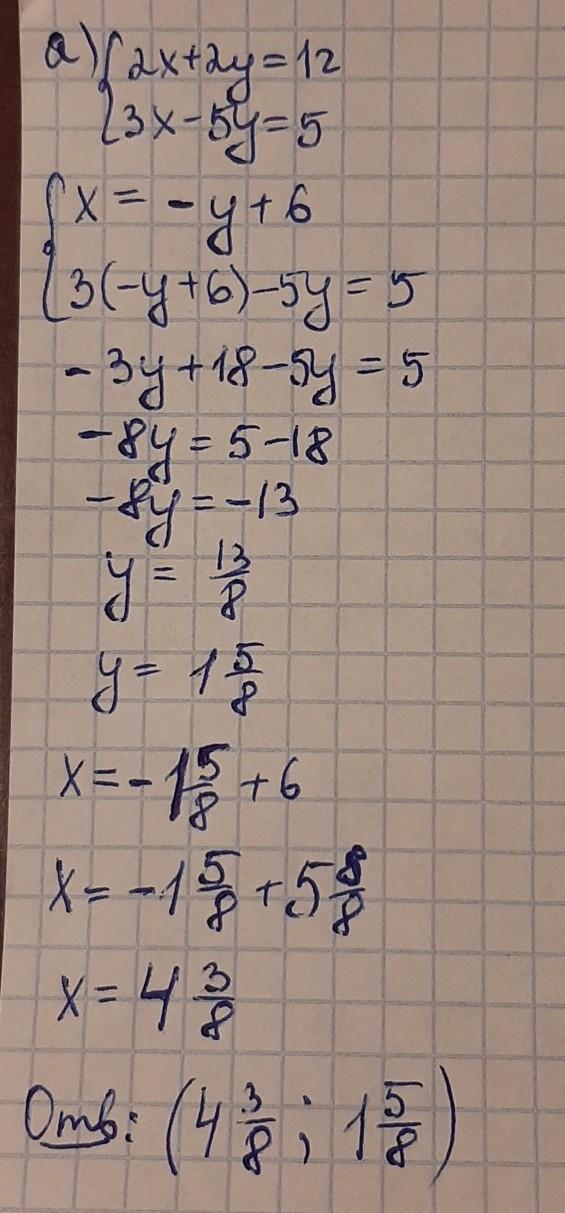 а) { 2x+2y=12
3x-5y=5
{ x = -y+6
3(-y+6)-5y=5
-3y+18-5y=5
-8y=5-18
-8y=-13
y= 13/8
y= 1 5/8
x=-1 5/8 +6
x=-1 5/8 +5 8/8
x=4 3/8
Отв: (4 3/8 ; 1 5/8)